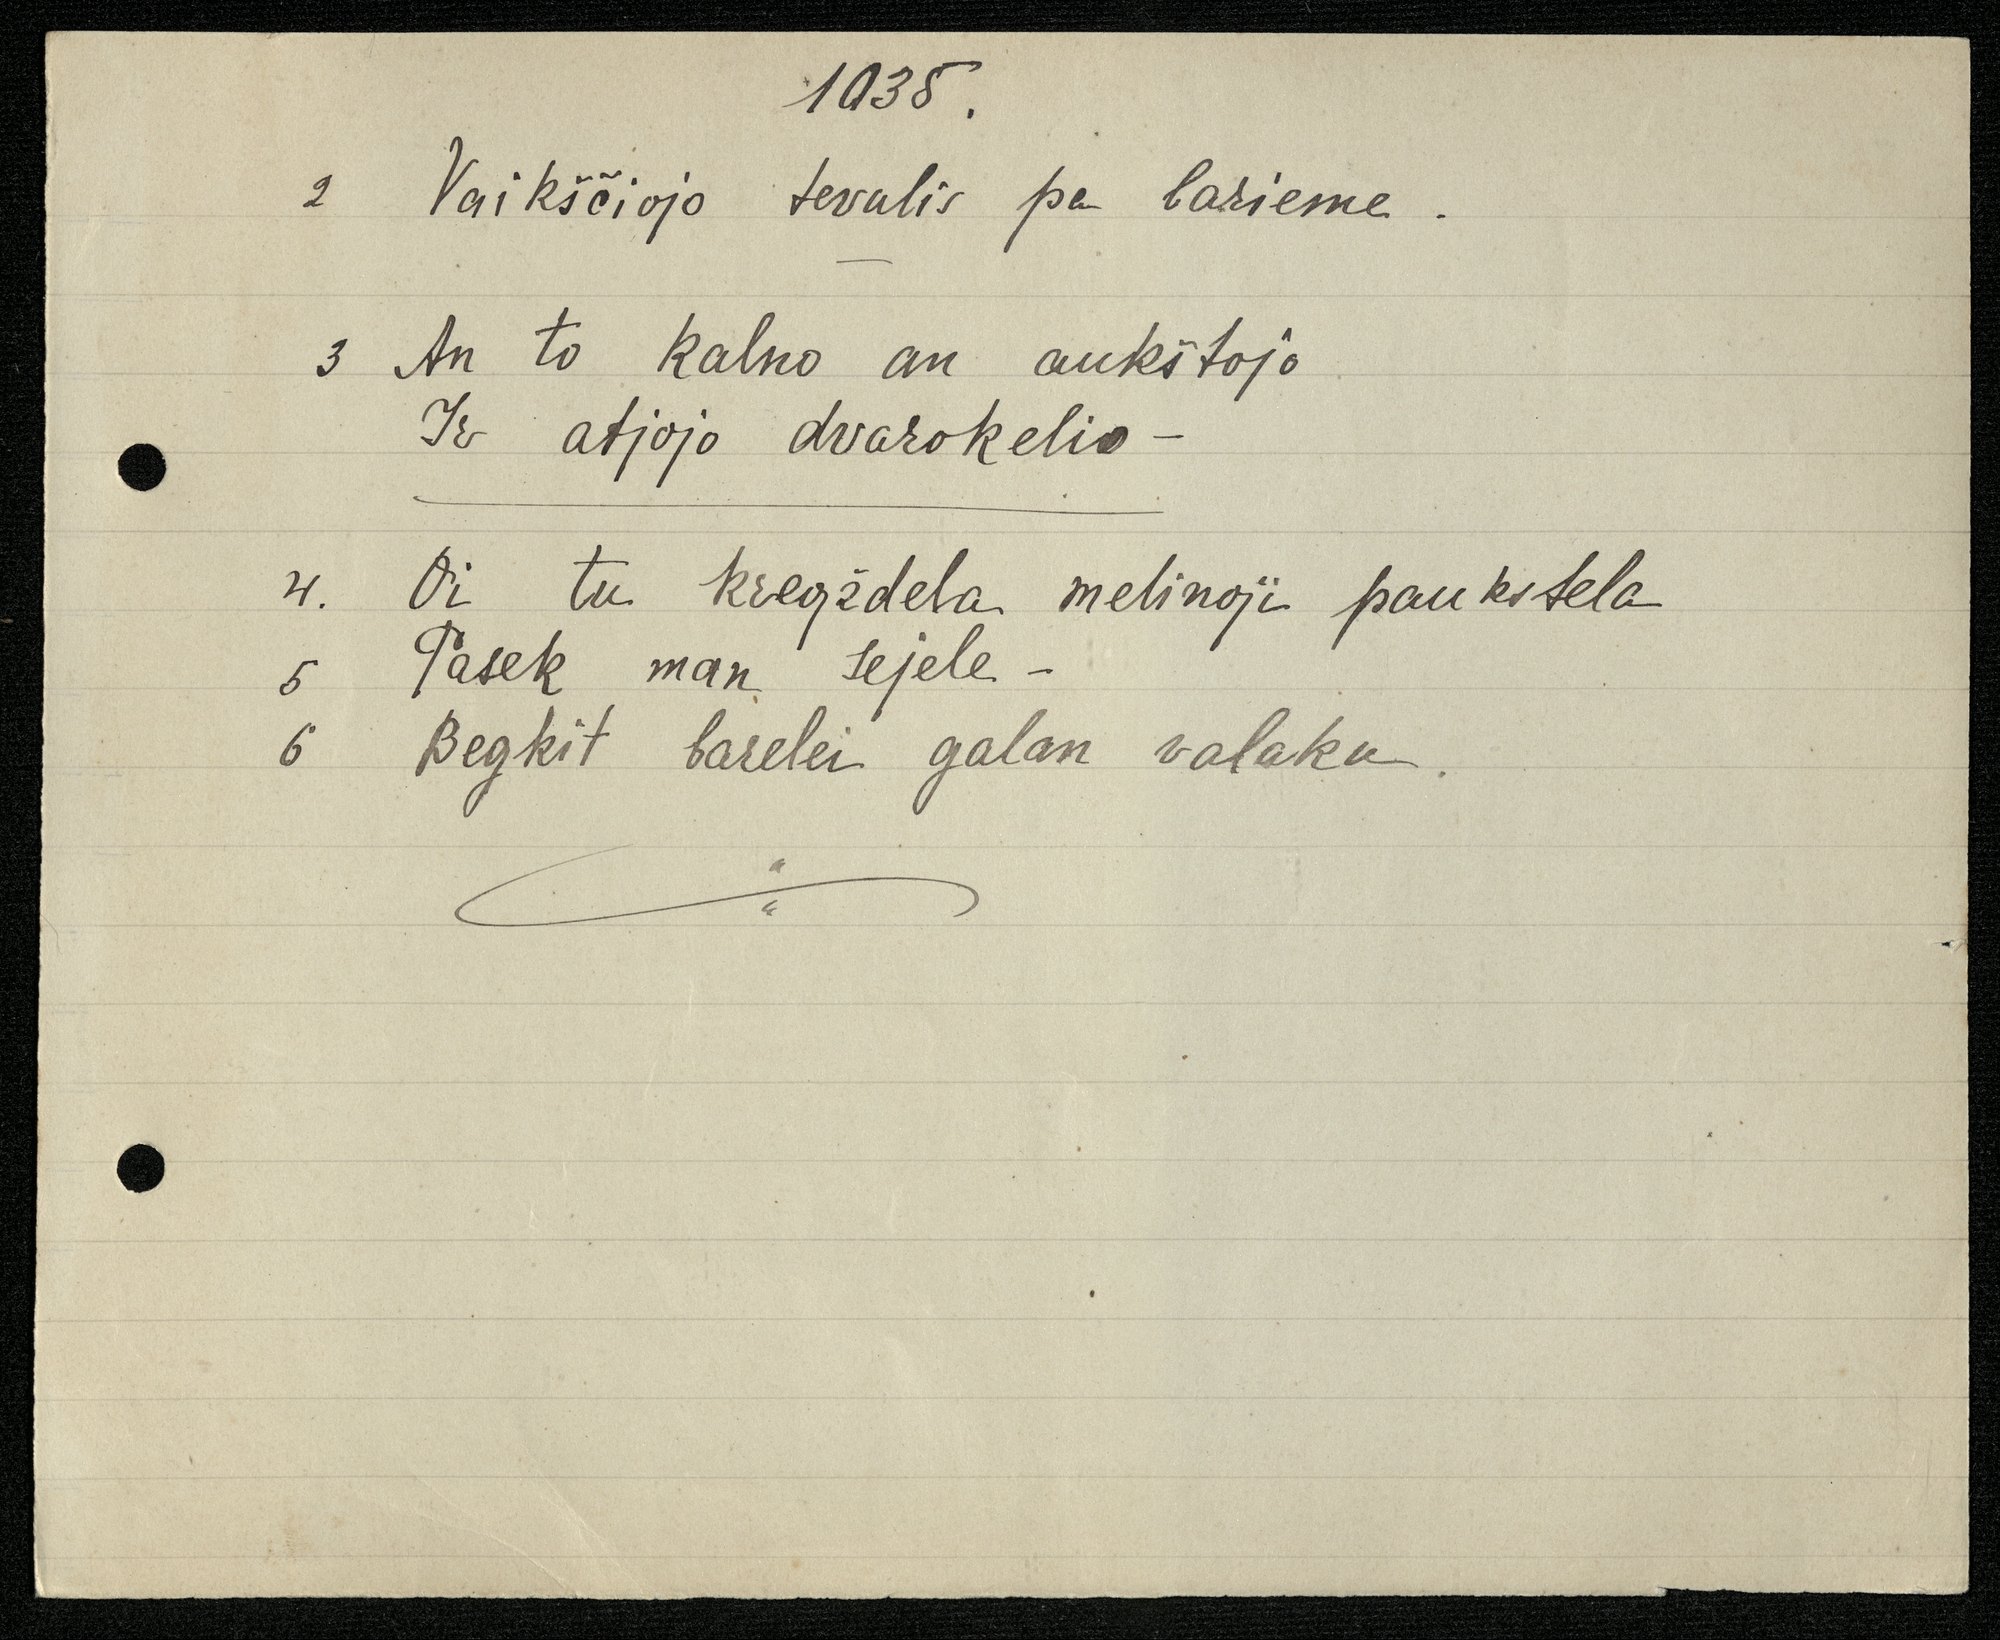 1035.
2 Vaikščiojo tevalis pa barieme.
3 An to kalno an aukštojo
Ir atjojo dvarokelio-
4. Oi tu kregždela melinoji paukstela
5 Pasek man sejele-
6 Begkit barelei galan valaku.